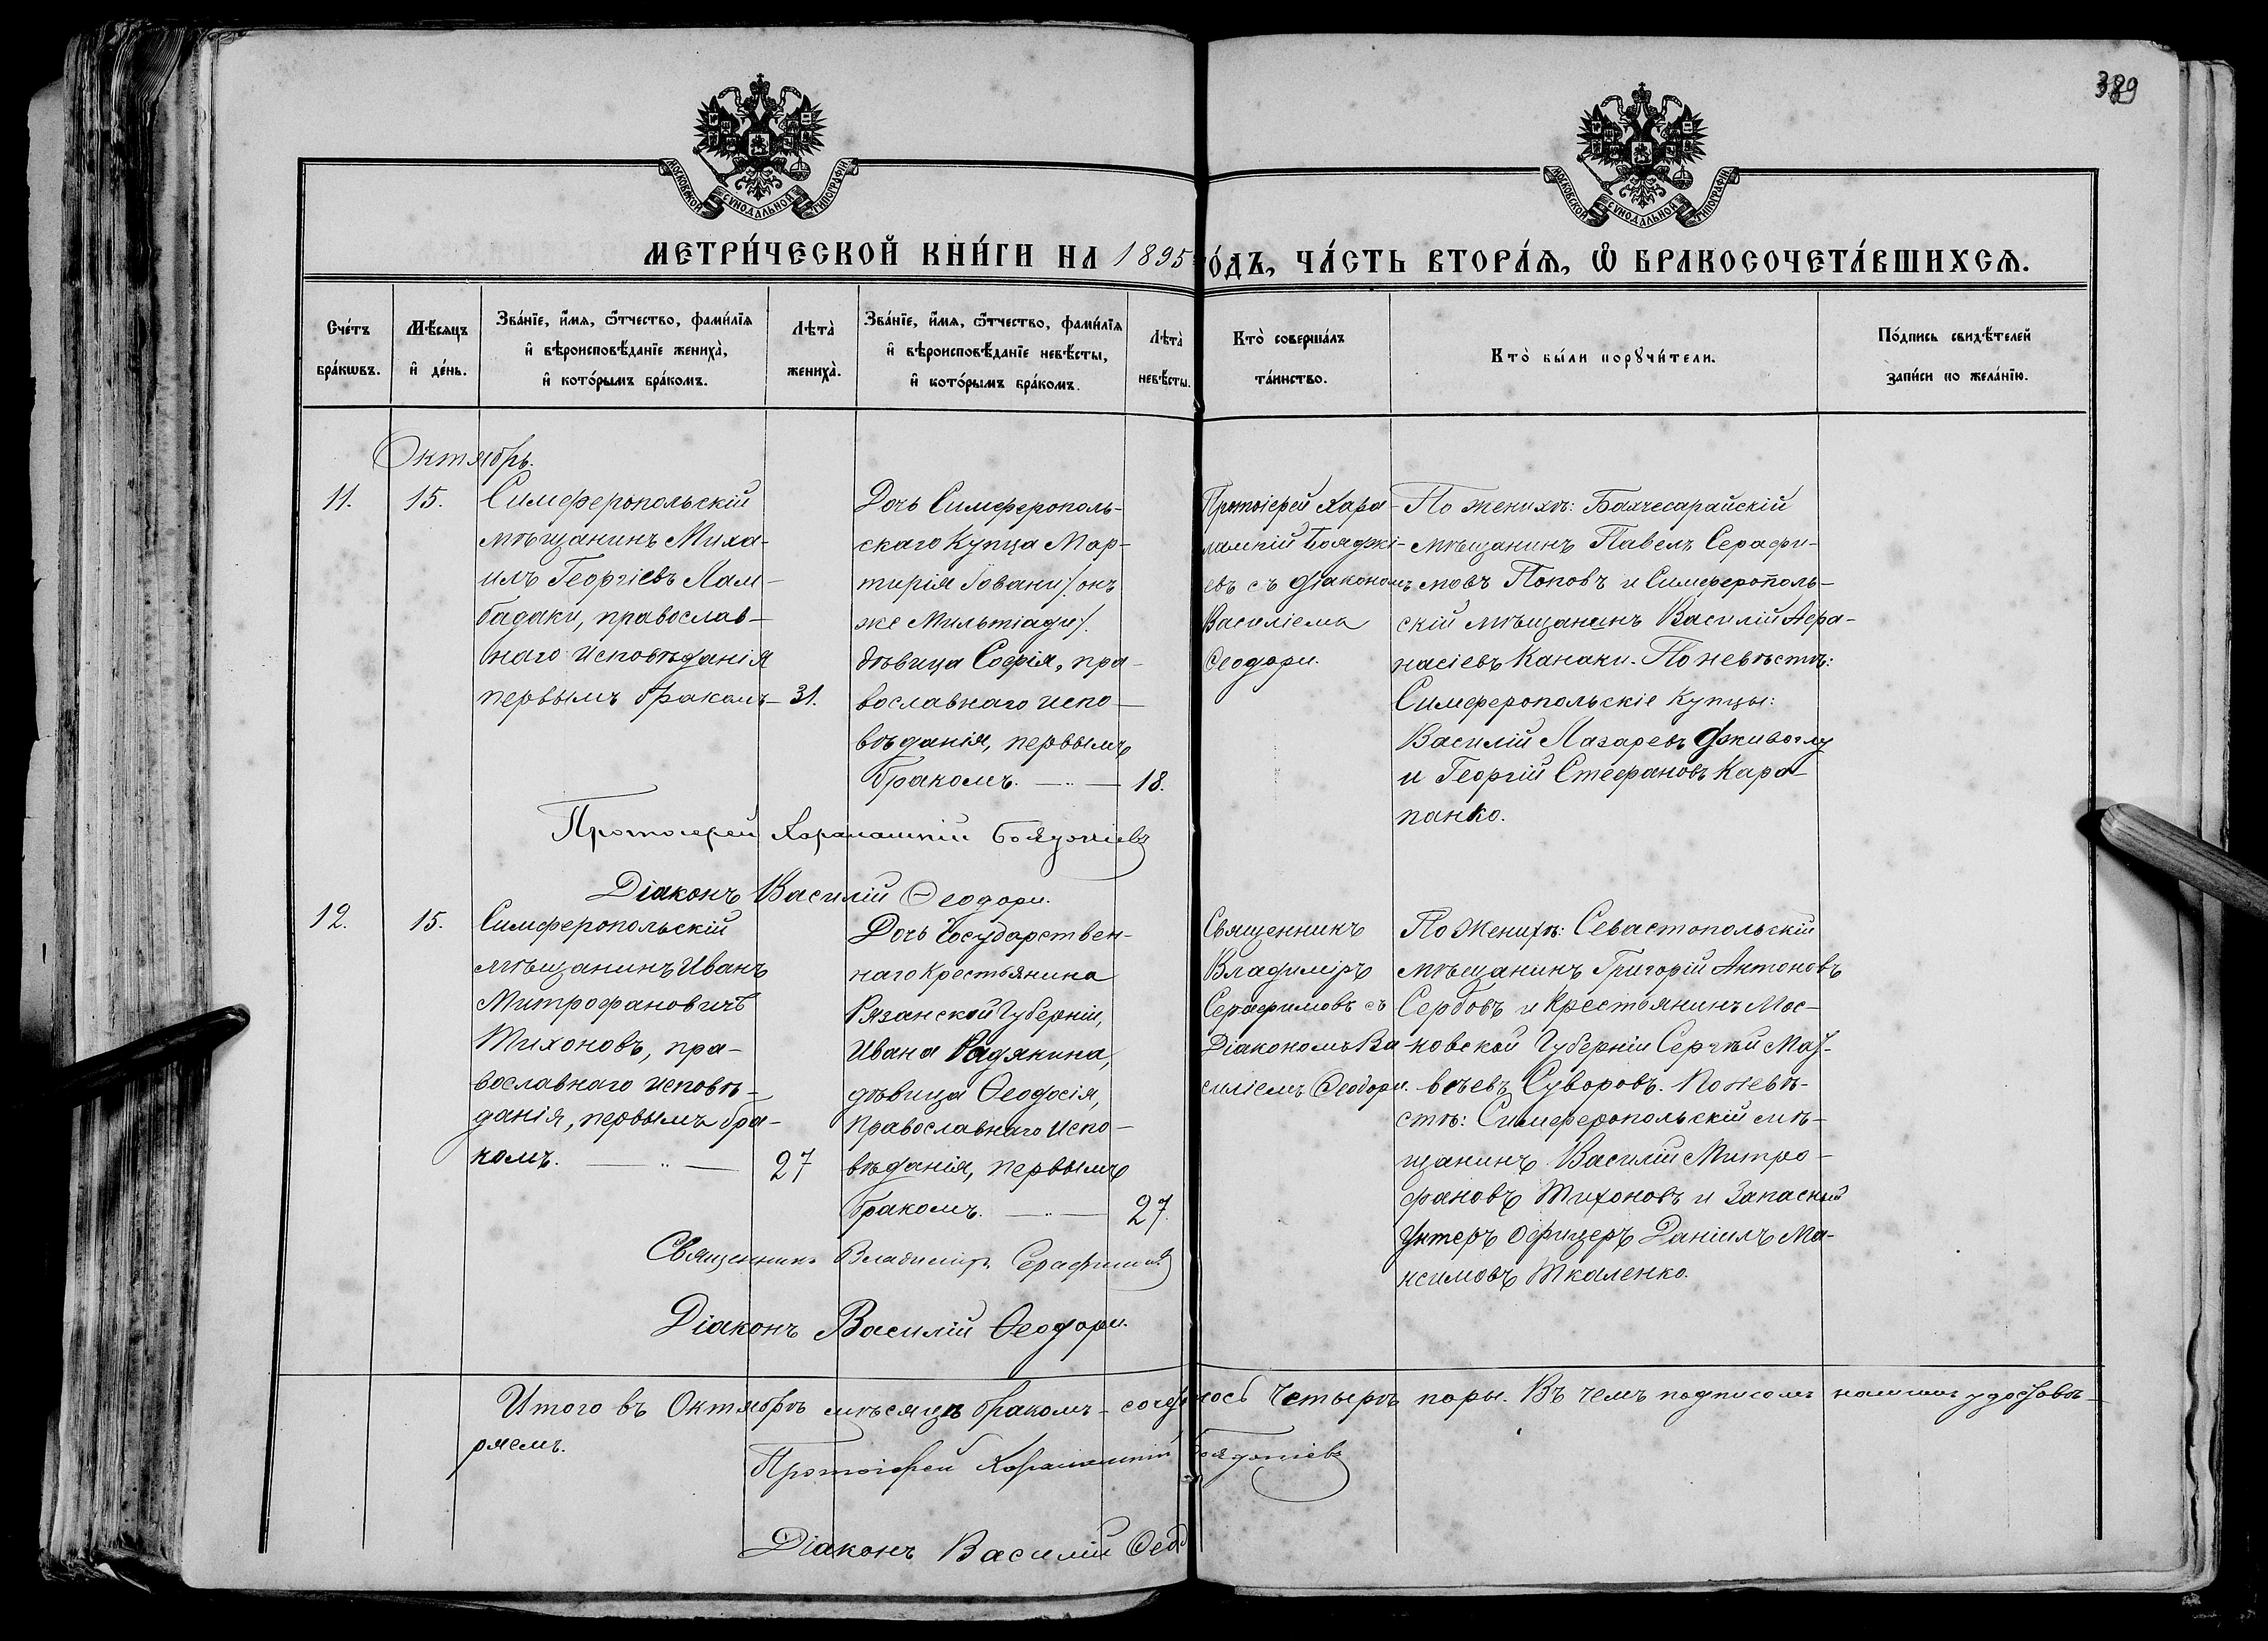 389
МОСКОВСКОЙ СѴНОДАЛЬНОЙ ТИПОГРАФІИ
МОСКОВСКОЙ СѴНОДАЛЬНОЙ ТИПОГРАФІИ
МЕТРИ́ЧЕСКОЙ КНИ́ГИ НА 1895 ГО́ДЪ, ЧА́СТЬ ВТОРА́Ѧ, Ѽ БРАКОСОЧЕТА́ВШИХСѦ.
Сче́тъ
бра́кѡвъ.
Мѣ́сяцъ
и҆ де́нь.
Зва́нїе, и҆́мѧ, ѻ҆́тчество, фами́лїѧ
и҆ вѣроисповѣ́данїе жениха̀,
и҆ кото́рымъ бра́комъ.
Лѣ́та̀
жениха̀.
Зва́нїе, и҆́мѧ, ѻ҆́тчество, фами́лїѧ
и҆ вѣроисповѣ́данїе невѣ́сты,
и҆ кото́рымъ бра́комъ.
Лѣта̀
невѣ́сты.
Кто̀ соверша́лъ
та́инство.
Кто̀ бы́ли порꙋчи́тели.
По́дпись свидѣ́телей
за́писи по жела́нїю.
Октябрь.
11.
15.
Симферопольскій
мѣщанинъ Миха-
илъ Георгіевъ Лам-
бадаки, православ-
наго исповѣданія
первымъ бракомъ —
31.
Дочь Симферополь-
скаго Купца Мар-
тирія Іовани /: онъ
же Мильтіади /.
дѣвица Софія, пра-
вославнаго испо-
вѣданія, первымъ
бракомъ. —
18.
Протоіерей Хара-
лампій Бояджі-
евъ съ діакономъ
Василіемъ
Ѳеодори.
По женихѣ: Бахчесарайскій
мѣщанинъ Павелъ Серафи-
мовъ Поповъ и Симферополь-
скій мѣщанинъ Василій Афа-
насіевъ Канаки. По невѣстѣ:
Симферопольскіе Купцы:
Василій Лазаревъ Дживоглу
и Георгій Стефановъ Кара-
панко.
Протоіерей Харалампій Бояджіевъ
Діаконъ Василій Ѳеодори.
12.
15.
Симферопольскій
мѣщанинъ Иванъ
Митрофановичъ
Тихоновъ, пра-
вославнаго исповѣ-
данія, первымъ бра-
комъ. —
27
Дочь Государствен-
наго Крестьянина
Рязанской Губерніи,
Ивана Радякина,
дѣвица Ѳеодосія,
Православнаго Испо-
вѣданія, первымъ
бракомъ. —
27.
Священникъ
Владиміръ
Серафимовъ съ
Діакономъ Ва-
силіемъ Ѳеодори.
По Женихѣ: Севастопольскій
мѣщанинъ Григорій Антоновъ
Сербовъ и Крестьянинъ Мос-
ковской Губерніи Сергѣй Мат-
вѣевъ Суворовъ. По невѣ-
стѣ: Симферопольскій мѣ-
щанинъ Василій Митро-
фановъ Тихоновъ и Запасный
Унтеръ Офицеръ Даніилъ Ма-
ксимовъ Ткаленко.
Священникъ Владиміръ Серафимовъ
Діаконъ Василій Ѳеодори.
Итого въ Октябрѣ мѣсяцѣ бракомъ сочеталось Четыре пары. Въ чемъ подписомъ нашимъ удостовѣ-
ряемъ.
Протоіерей Харалампій Бояджіевъ
Діаконъ Василій Ѳеод